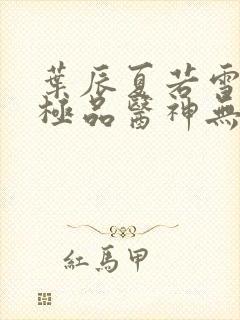 葉辰夏若雪
極品醫神無
紅馬甲